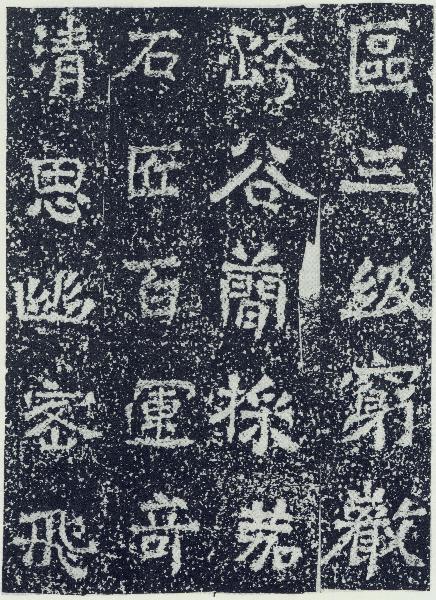 區三級窮巖
跨谷簡採茄
石匠百運奇
清思幽密飛